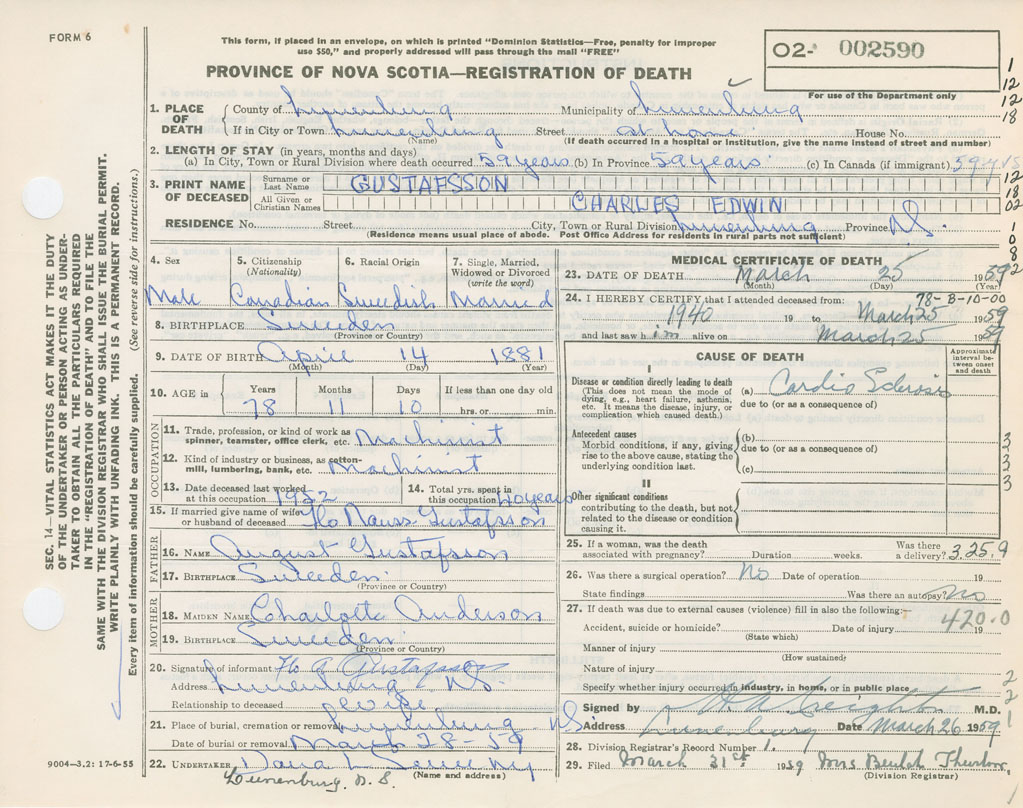 FORM 6
This form, if placed in an envelope, on which is printed "Dominion Statistics—Free, penalty for improper
use $50," and properly addressed will pass through the mail "FREE"
PROVINCE OF NOVA SCOTIA—REGISTRATION OF DEATH
O2- 002590
For use of the Department only
1
12
18
1. PLACE OF DEATH
County of Lunenburg Municipality of Lunenburg
If in City or Town Lunenburg Street at home House No.
(Name) (If death occurred in a hospital or institution, give the name instead of street and number)
2. LENGTH OF STAY (in years, months and days)
(a) In City, Town or Rural Division where death occurred 59 years (b) In Province 59 years (c) In Canada (if immigrant) 59
3. PRINT NAME OF DECEASED
Surname or Last Name GUSTAFSSION
All Given or Christian Names CHARLES EDWIN
12
18
02
RESIDENCE No. Street City, Town or Rural Division Lunenburg Province N.S.
(Residence means usual place of abode. Post Office Address for residents in rural parts not sufficient)
1
0
8
2
4. Sex
Male
5. Citizenship (Nationality)
Canadian
6. Racial Origin
Swedish
7. Single, Married, Widowed or Divorced (write the word)
Married
8. BIRTHPLACE Sweden
(Province or Country)
9. DATE OF BIRTH April 14 1881
(Month) (Day) (Year)
10. AGE in
Years Months Days If less than one day old
78 11 10 hrs. or min.
OCCUPATION
11. Trade, profession, or kind of work as
spinner, teamster, office clerk, etc. Machinist
12. Kind of industry or business, as cotton-
mill, lumbering, bank, etc. Machinist
13. Date deceased last worked
at this occupation 1952
14. Total yrs. spent in
this occupation 40 years
15. If married give name of wife
or husband of deceased Flo Nauss Gustafsson
FATHER
16. NAME August Gustafsson
17. BIRTHPLACE Sweden
(Province or Country)
MOTHER
18. MAIDEN NAME Charlotte Anderson
19. BIRTHPLACE Sweden
(Province or Country)
20. Signature of informant Flo A Gustafsson
Address Lunenburg N.S.
Relationship to deceased Wife
21. Place of burial, cremation or removal Lunenburg N.S.
Date of burial or removal March 28 - 59
22. UNDERTAKER Dana L
(Name and address)
Lunenburg, N.S.
9004—3.2: 17-6-55
MEDICAL CERTIFICATE OF DEATH
23. DATE OF DEATH March 25 1959
(Month) (Day) (Year)
78-B-10-00
24. I HEREBY CERTIFY that I attended deceased from:
1940 19 to March 25 1959
and last saw him alive on March 25 1959
CAUSE OF DEATH
Approximate interval between onset and death
I
Disease or condition directly leading to death
(This does not mean the mode of
dying, e.g., heart failure, asthenia,
etc. It means the disease, injury, or
complication which caused death.)
(a) Cardio Sclerosis
due to (or as a consequence of)
Antecedent causes
Morbid conditions, if any, giving
rise to the above cause, stating the
underlying condition last.
(b)
due to (or as a consequence of)
(c)
3
3
3
3
II
Other significant conditions
contributing to the death, but not
related to the disease or condition
causing it.
25. If a woman, was the death
associated with pregnancy? Duration weeks. Was there a delivery? 3.25.9
26. Was there a surgical operation? No Date of operation 19
State findings Was there an autopsy? No
27. If death was due to external causes (violence) fill in also the following:
420.0
Accident, suicide or homicide? Date of injury 19
(State which)
Manner of injury
(How sustained)
Nature of injury
Specify whether injury occurred in industry, in home, or in public place
2
2
Signed by H A Creighton M.D.
Address Lunenburg Date March 26 1959
28. Division Registrar's Record Number 1.
29. Filed March 31st 1959 Mrs Beulah
(Division Registrar)
SEC. 14—VITAL STATISTICS ACT MAKES IT THE DUTY
OF THE UNDERTAKER OR PERSON ACTING AS UNDER-
TAKER TO OBTAIN ALL THE PARTICULARS REQUIRED
IN THE "REGISTRATION OF DEATH" AND TO FILE THE
SAME WITH THE DIVISION REGISTRAR WHO SHALL ISSUE THE BURIAL PERMIT.
WRITE PLAINLY WITH UNFADING INK. THIS IS A PERMANENT RECORD.
Every item of information should be carefully supplied. (See reverse side for instructions.)